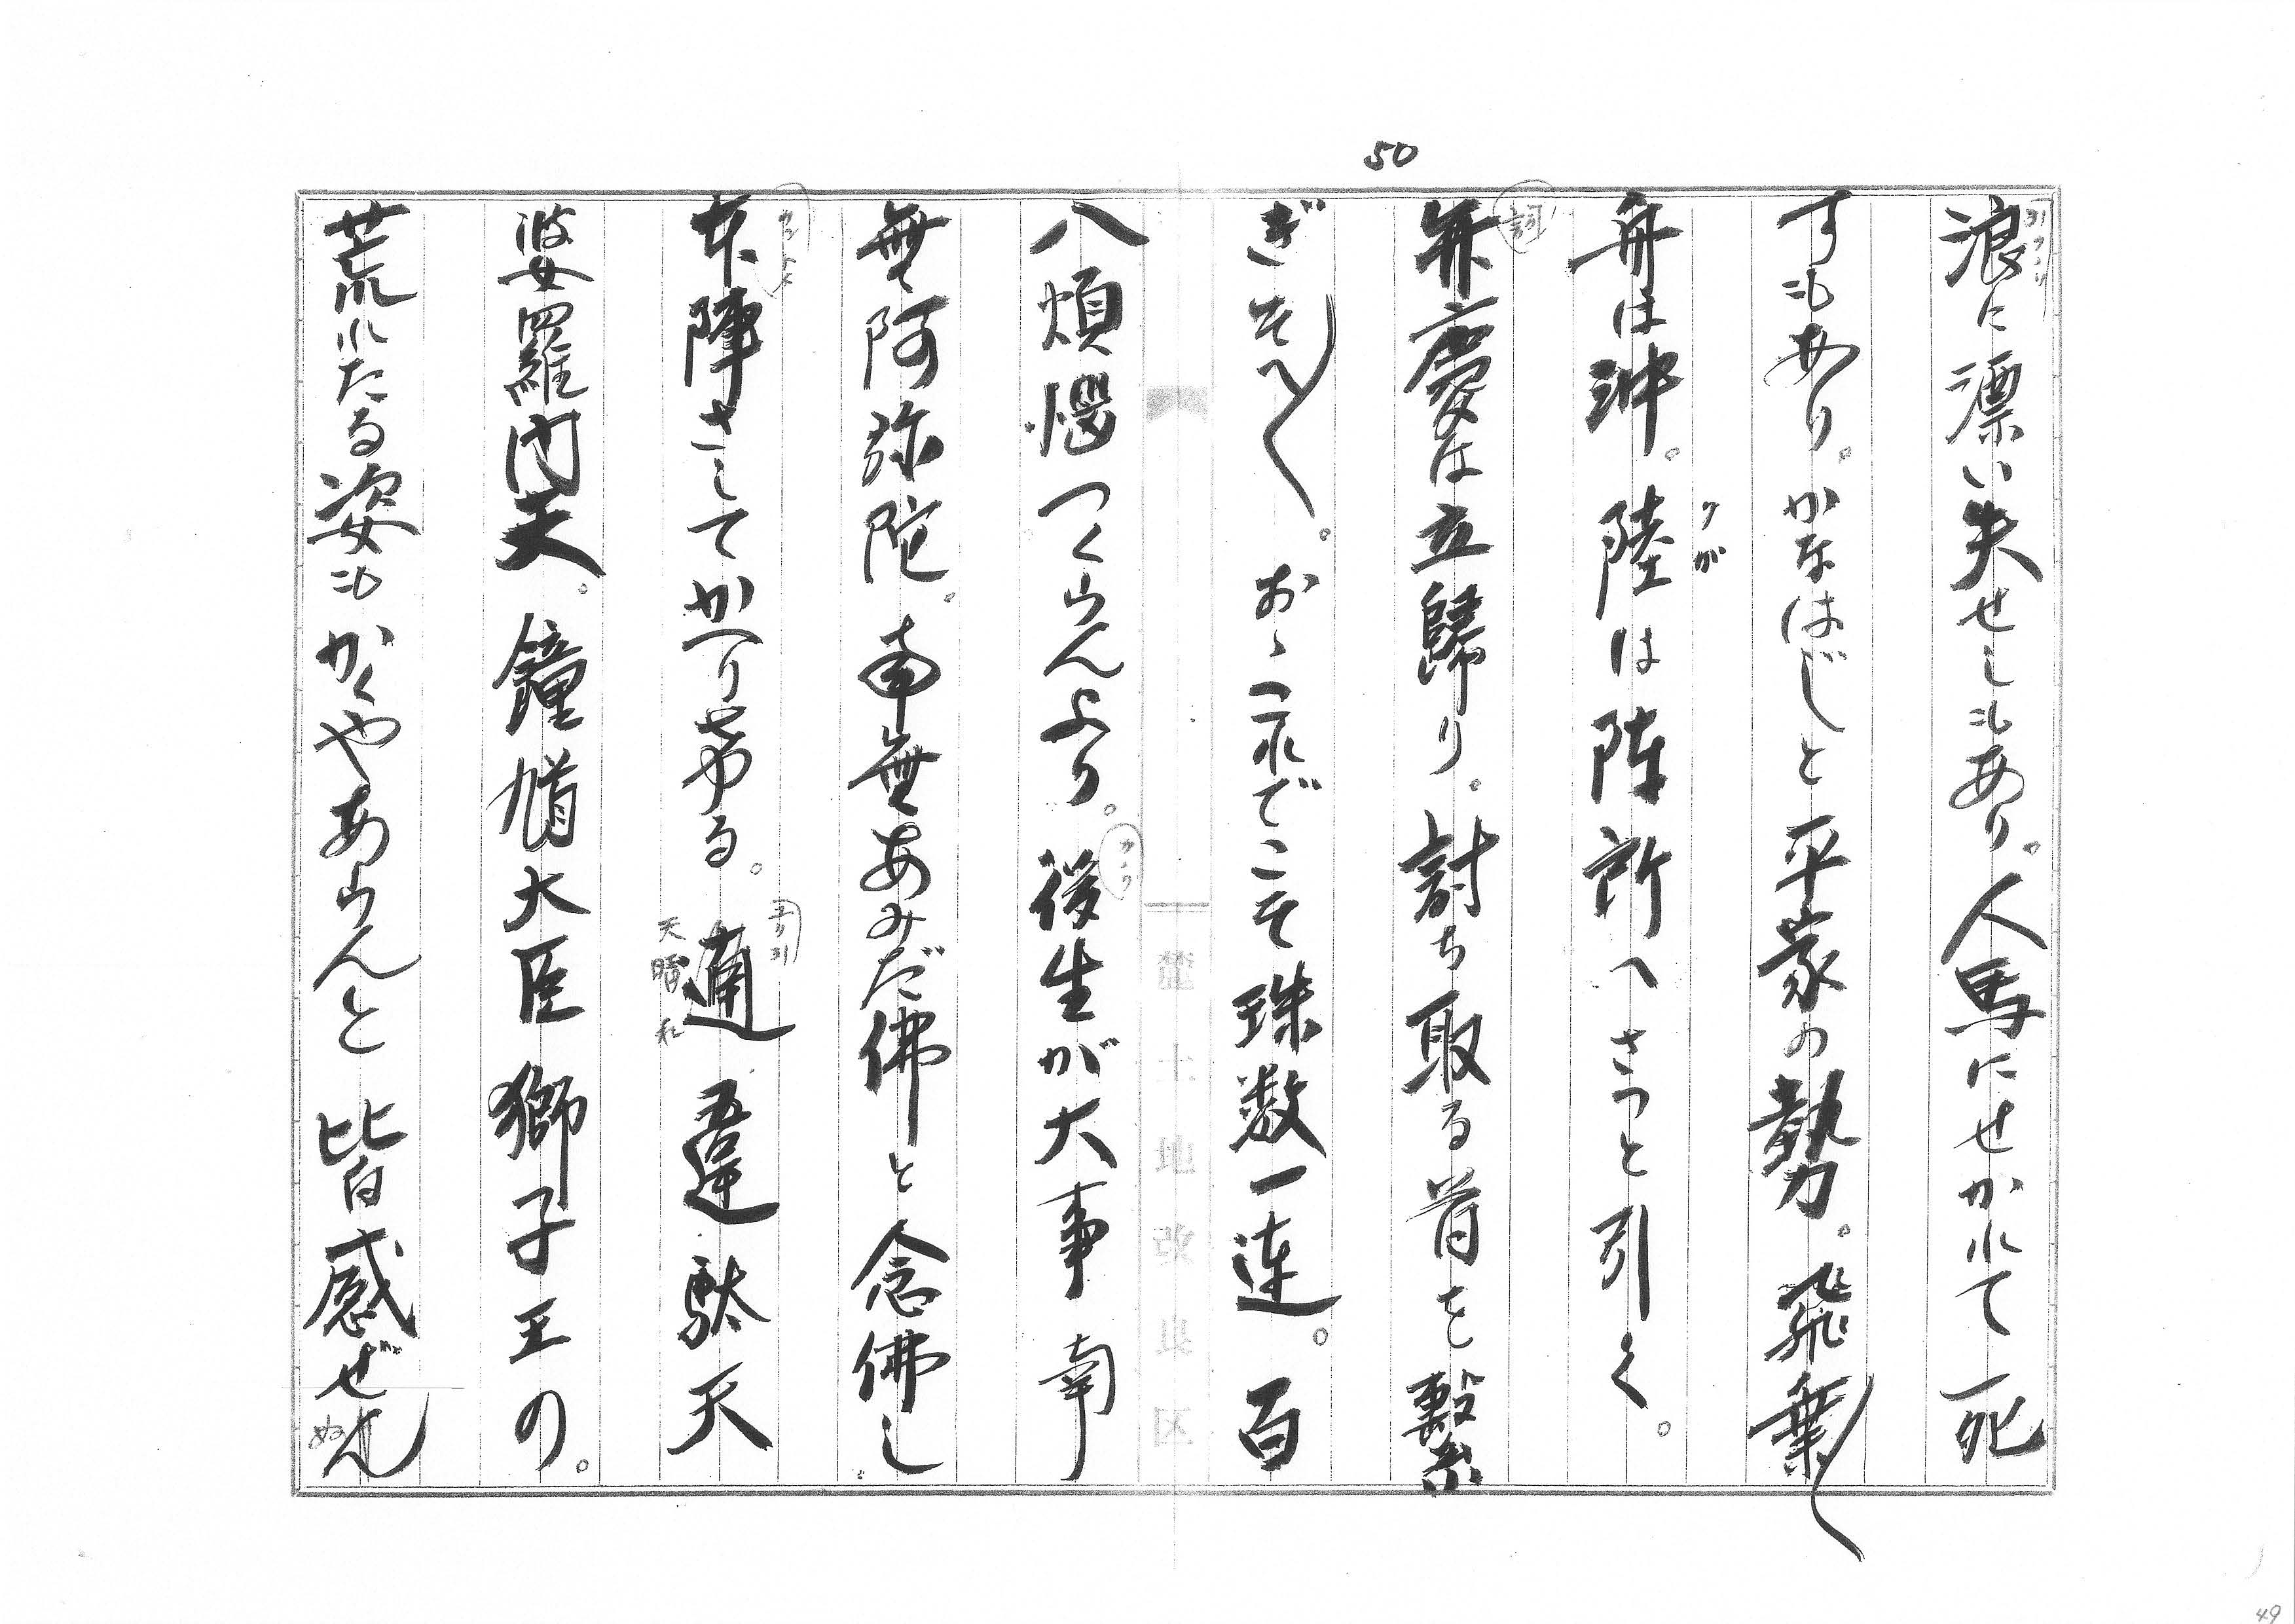 50
浪に漂い失せしもあり。人馬にせかれて死
すもあり。かなはじと平家の勢。飛乗〳〵
舟は沖。陸は陣所へさっと引く。
クガ
詞
弁慶は立歸り。討ち取る首を繋
ぎそへ〳〵。おゝこれでこそ珠数一連。百
八煩悩つくらんより。後生が大事南
無阿弥陀。南無あみだ佛と念佛し
本陣さしてかへりける。適違駄天
天晴
婆羅門天。鐘馗大臣獅子王の。
荒れたる姿もかくやあらんと皆感ぜん
ぬ
49